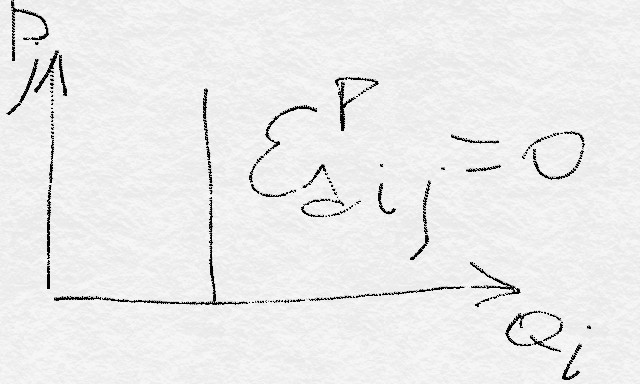 Pj
εᵖs i,j = 0
Qi